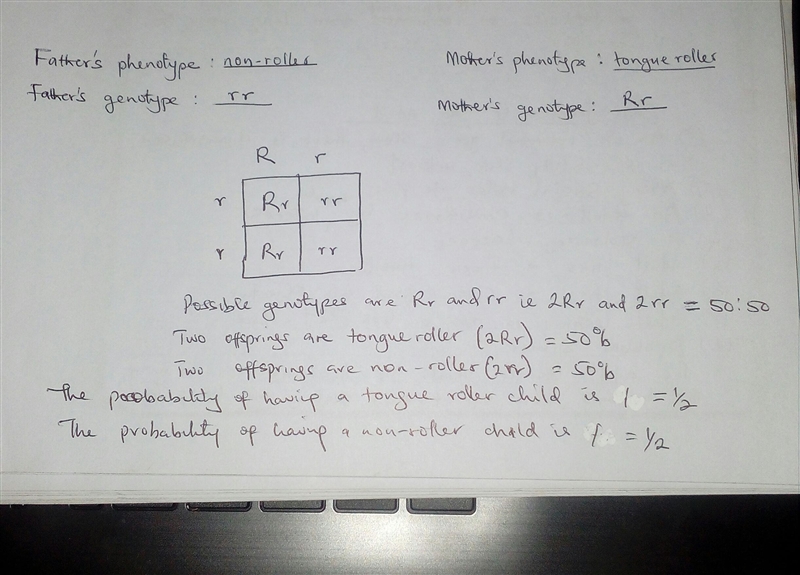 Father's phenotype : non-roller Mother's phenotype : tongue roller
Father's genotype : rr Mother's genotype : Rr
R r
r Rr rr
r Rr rr
Possible genotypes are Rr and rr ie 2Rr and 2rr = 50:50
Two offsprings are tongue roller (2Rr) = 50%
Two offsprings are non-roller (2rr) = 50%
The probability of having a tongue roller child is = 1/2
The probability of having a non-roller child is = 1/2